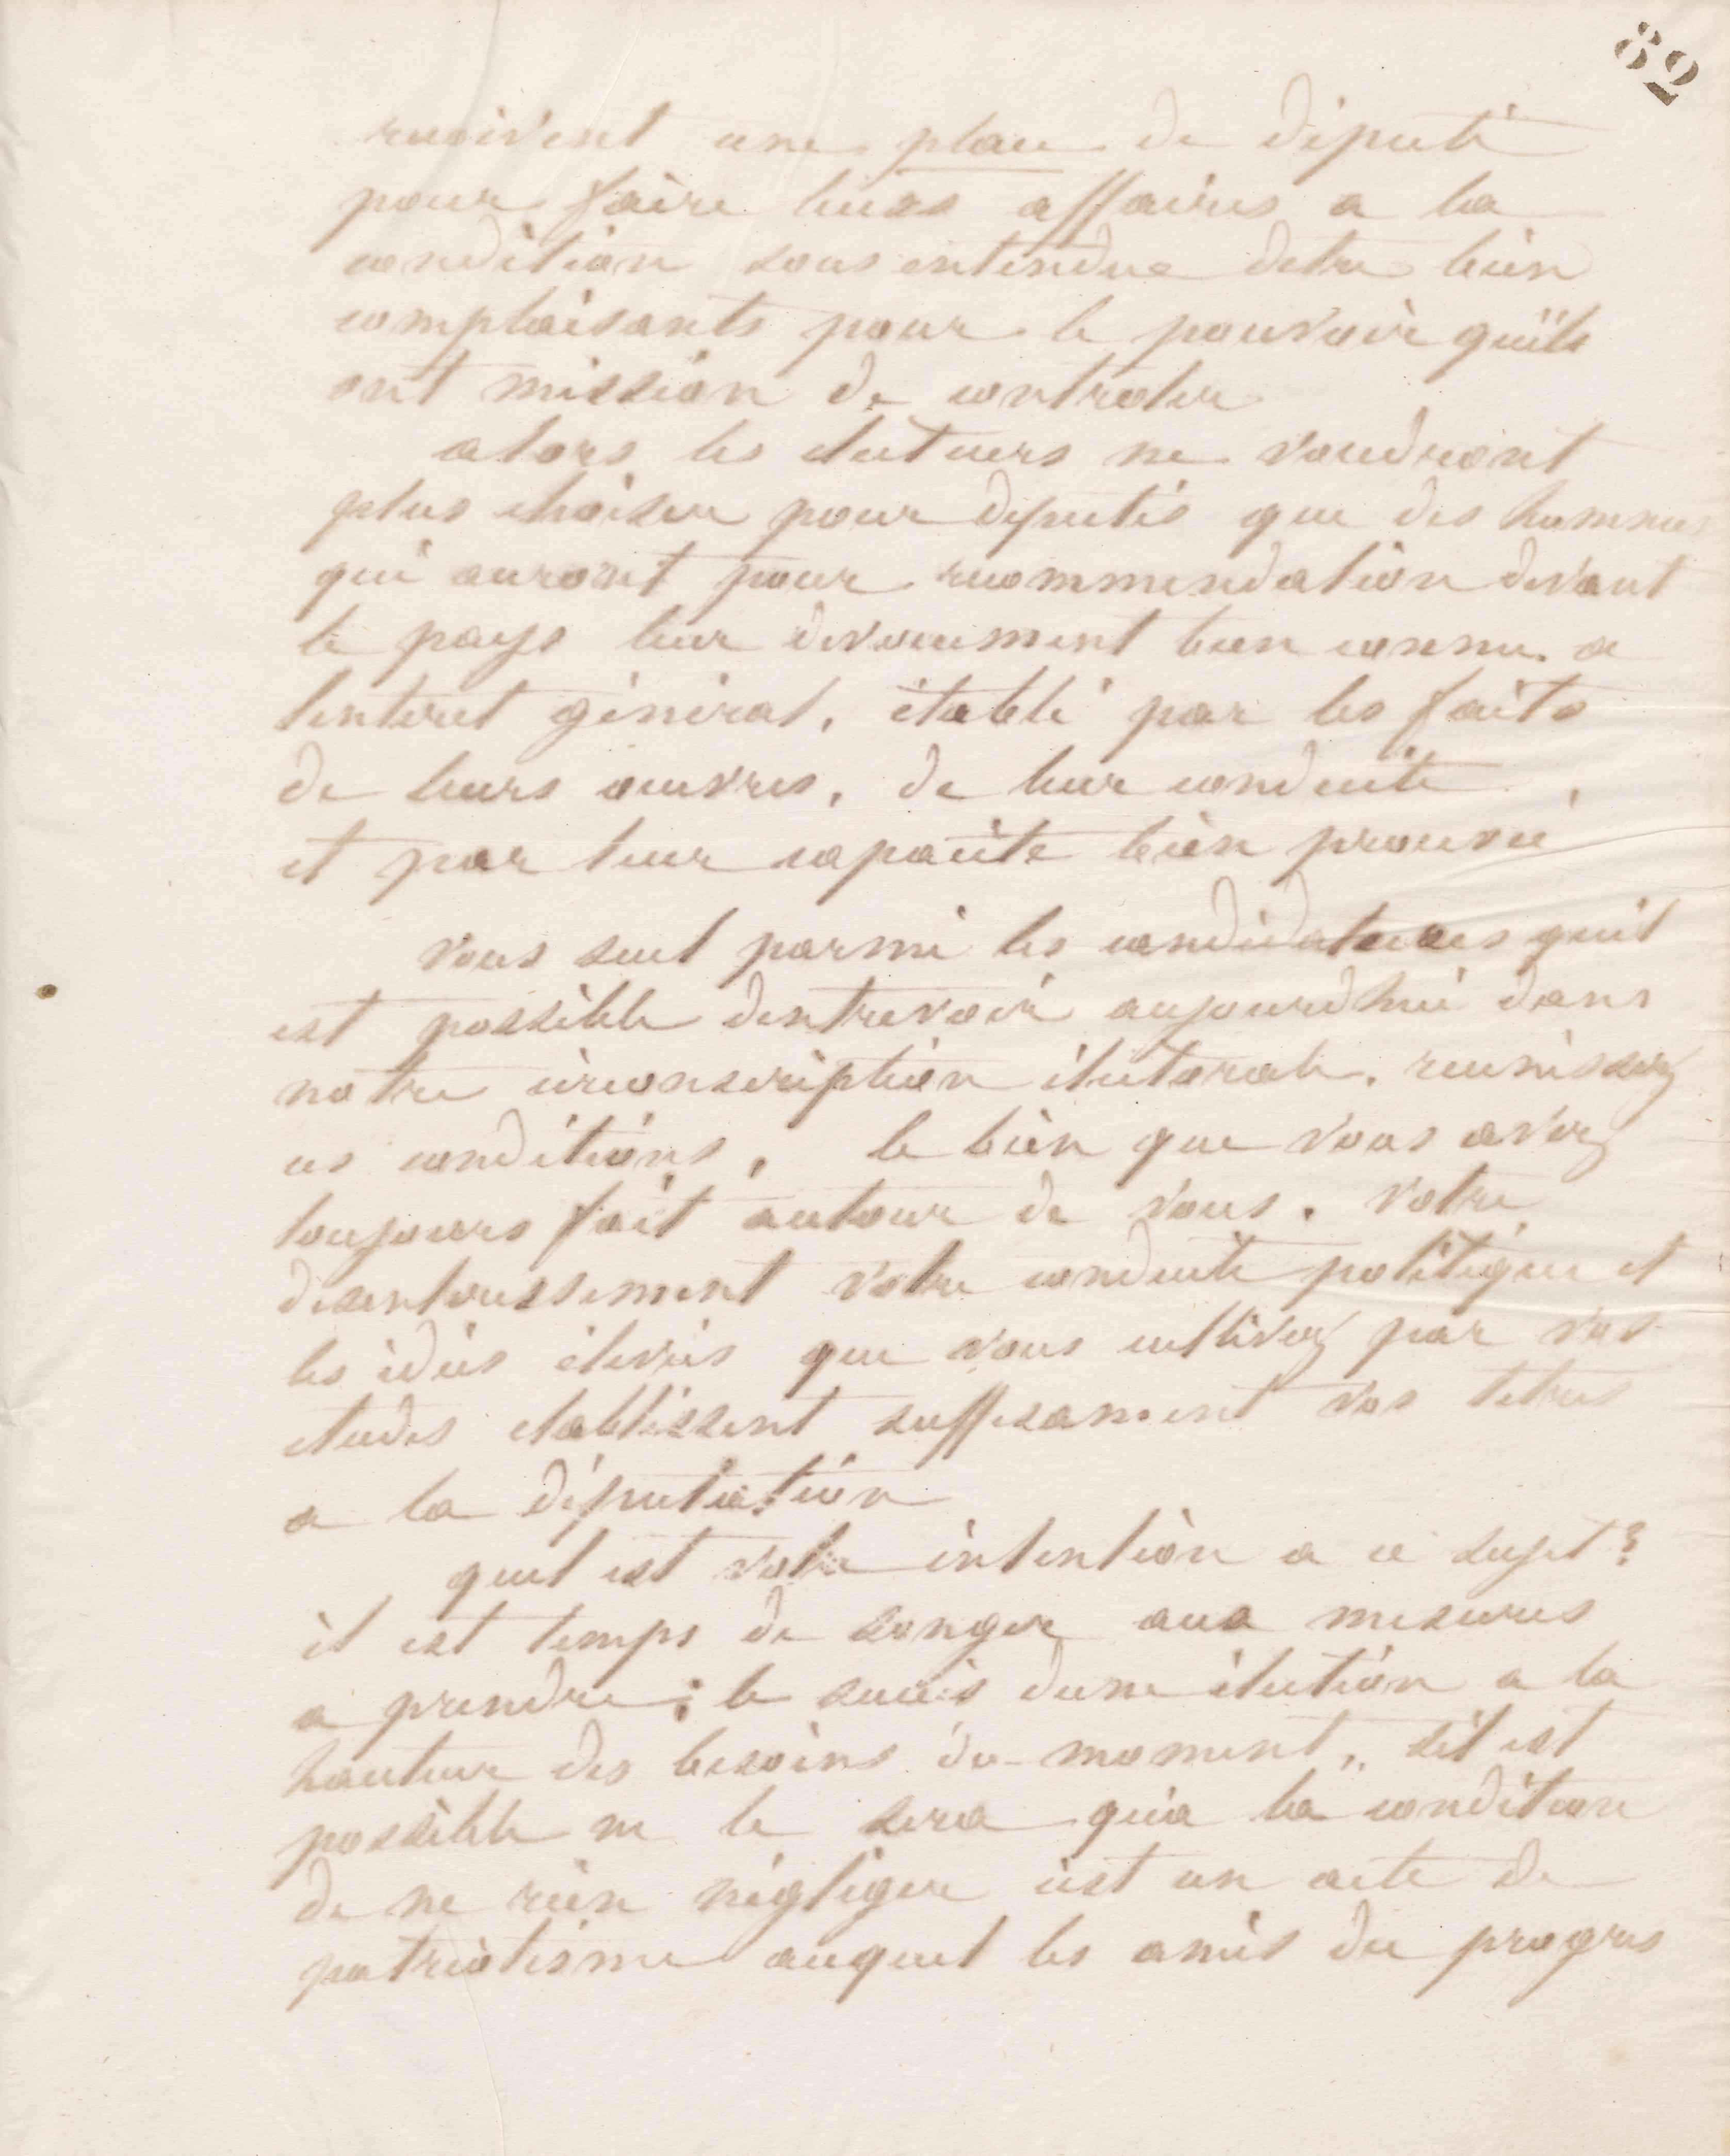 82
recoivent une place de député
pour faire leurs affaires a la
condition sous entendue detre bien
complaisants pour le pouvoir quils
ont mission de controler
alors les electeurs ne voudront
plus choisir pour députés que des hommes
qui auront pour recommendation devant
le pays leur devouement bien connu a
linteret général, établi par les faits
de leurs œuvres, de leur conduite,
et par leur capacité bien prouvée
vous seul parmi les candidatures quil
est possible dentrevoir aujourdhui dans
notre circonscription électorale, reunissez
ces conditions, le bien que vous avez
toujours fait autour de vous, votre
desinteressement votre conduite politique et
les idées élevées que vous cultivez par vos
etudes etablissent suffisament vos titres
a la députation
quel est votre intention a ce sujet ?
il est temps de songer aux mesures
a prendre ; le succès dune élection a la
hauteur des besoins du moment, sil est
possible ne le sera qua la condition
de ne rien négliger cest un acte de
patriotisme auquel les amis du progres